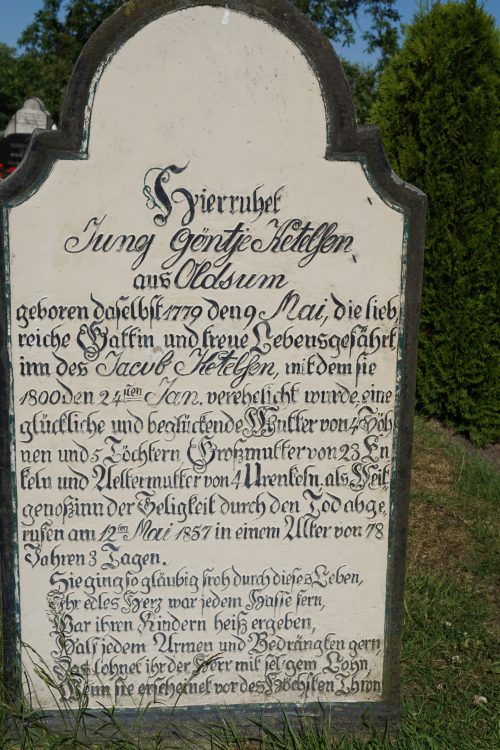 Hier ruhet
Jung Göntje Ketelsen
aus Oldsum
geboren daselbst 1779 den 9 Mai, die lieb
reiche Gattin und treue Lebensgefährt
inn des Jacob Ketelsen, mit dem sie
1800 den 24sten Jan. verehelicht wurde, eine
glückliche und beglückende Mutter von 4 Söh
nen und 5 Töchtern Großmutter von 23 En
keln und Aeltermutter von 4 Urenkeln, als Mit
genoßinn der Seligkeit durch den Tod abge
rufen am 12ten Mai 1857 in einem Alter von 78
Jahren 3 Tagen.
Sie ging so gläubig froh durch dieses Leben,
Ihr edles Herz war jedem Hasse fern,
War ihren Kindern heiß ergeben,
Half jedem Armen und Bedrängten gern
Das lohnet ihr der Herr mit sel'gem Lohn,
Wenn sie erscheinet vor des Höchsten Thron